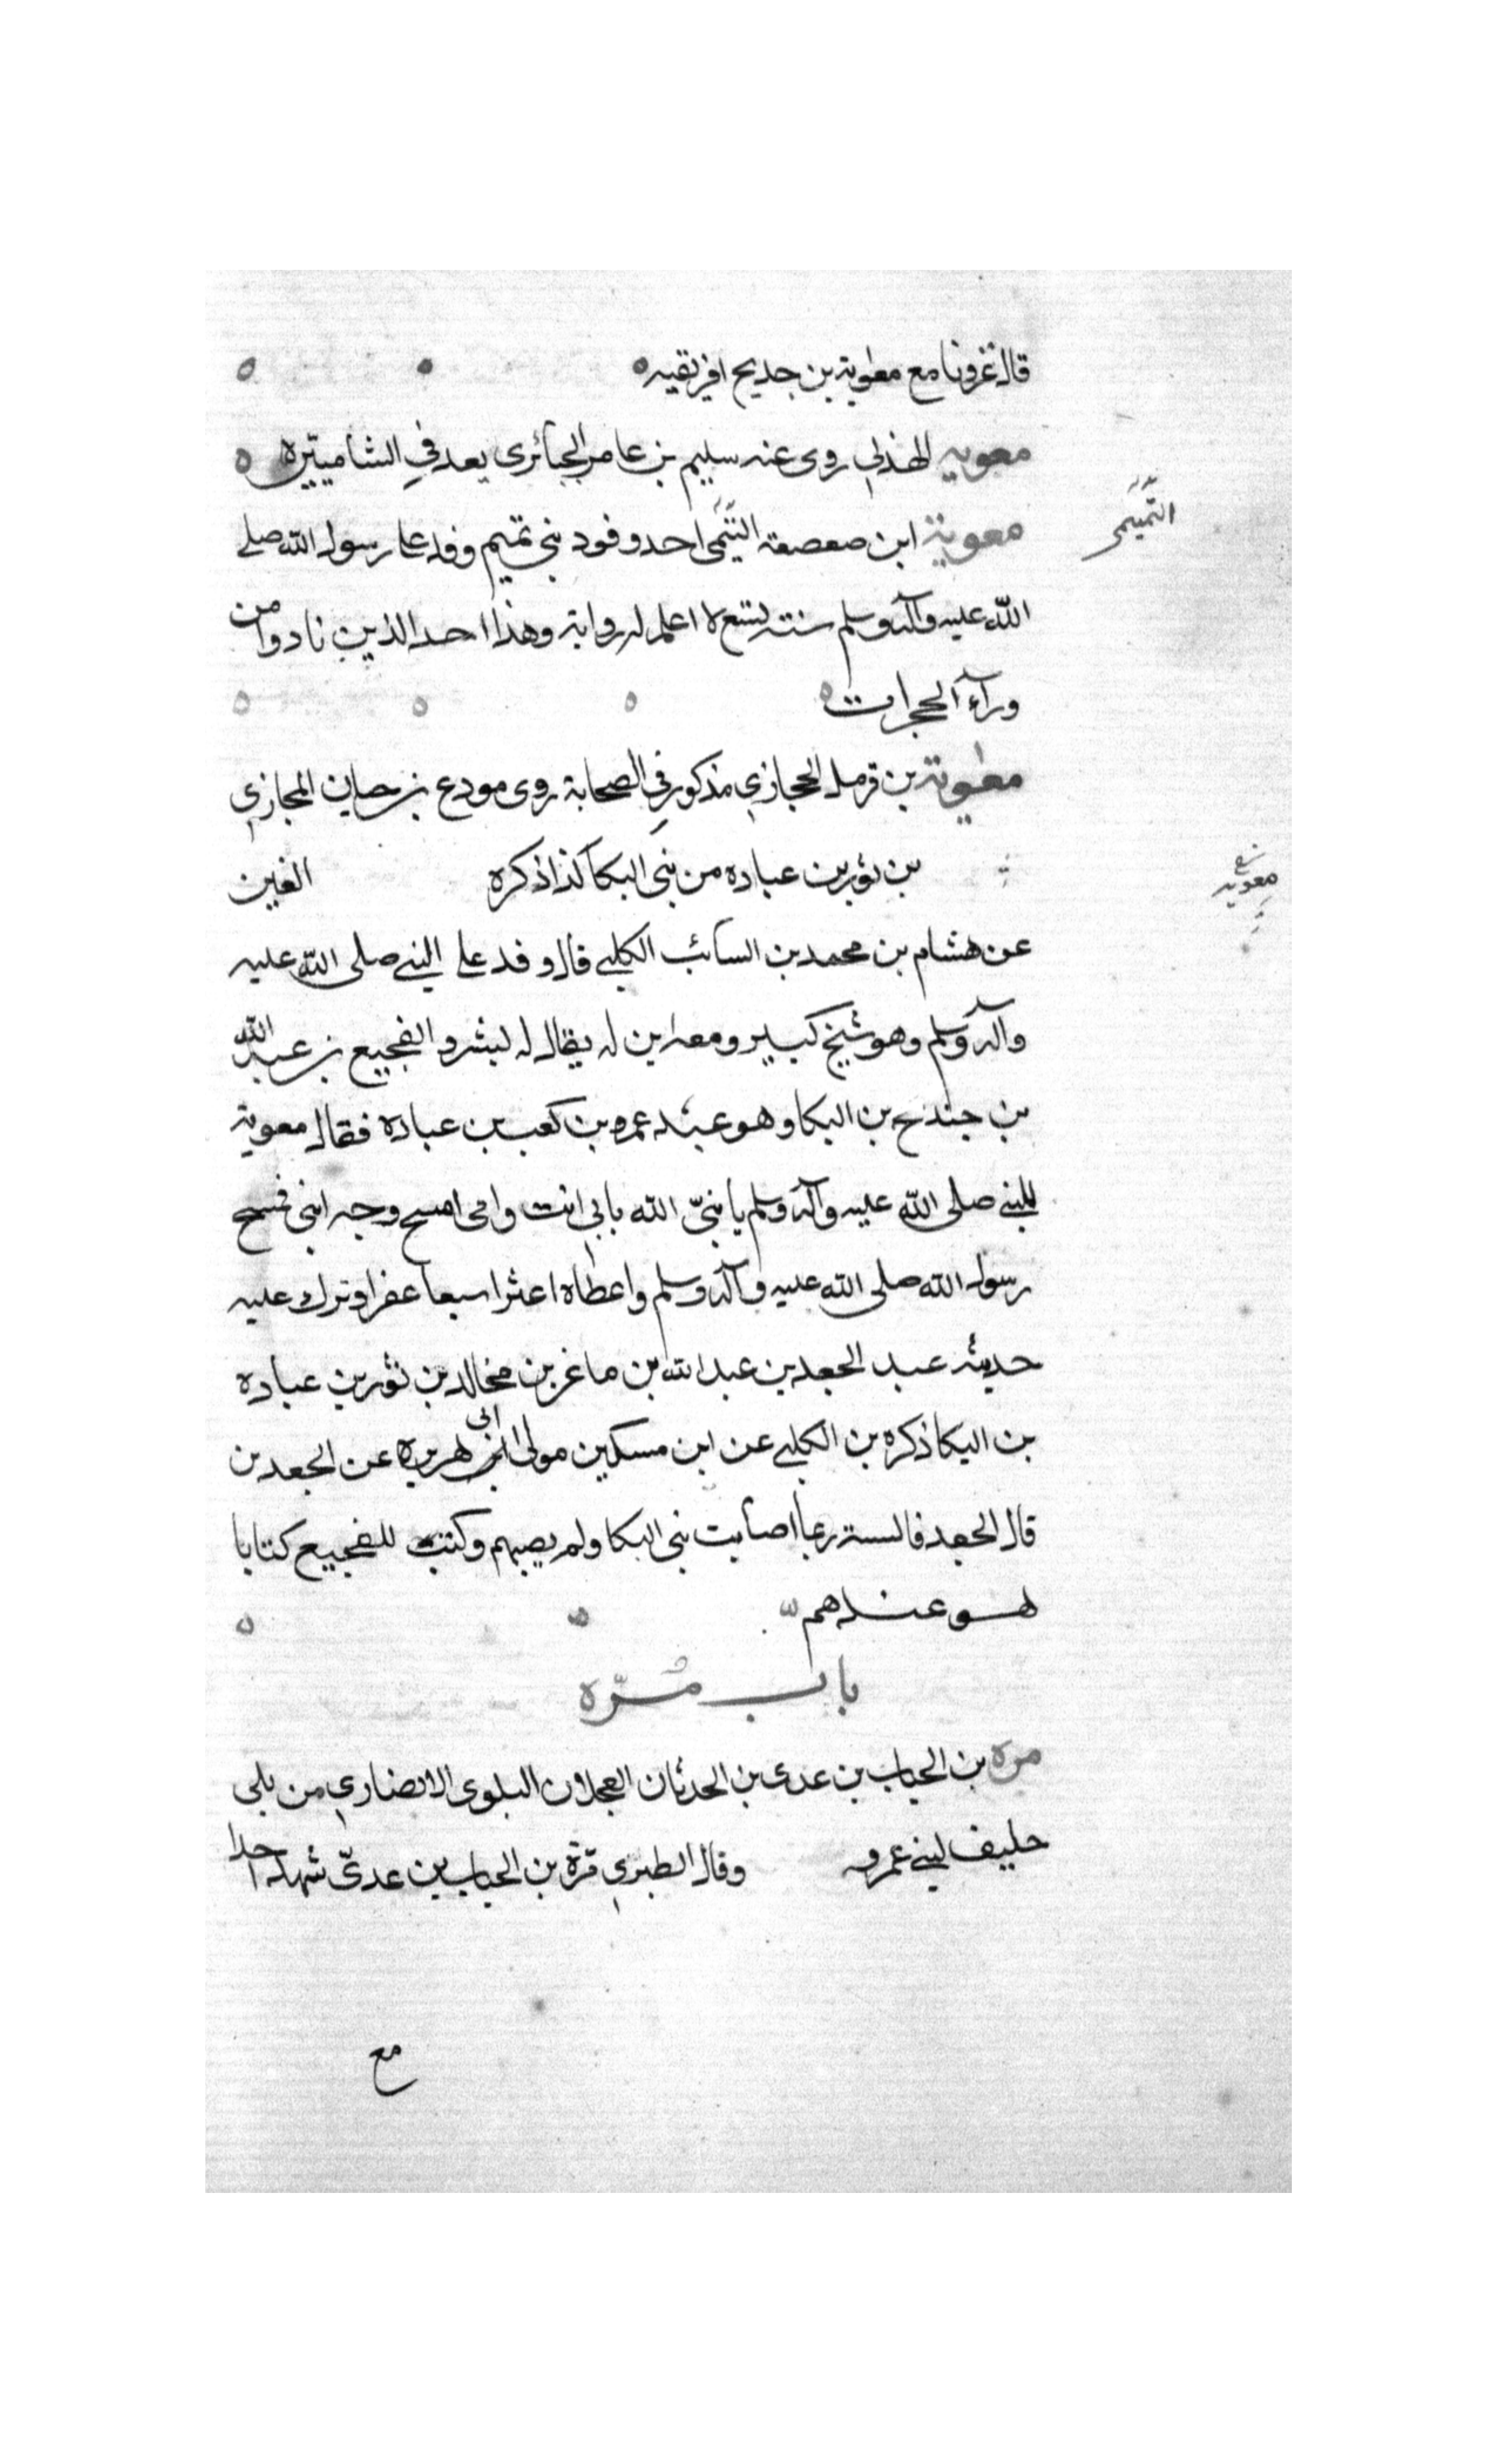 قال غزونا مع معاوية بن حديج افريقيه
معويه الهذلي روى عنه سليم بن عامر الجبائرى يعد في الشاميين
معوية ابن صعصعة التيمى احد وفود بني تميم وفد على رسول الله صلى
التميمى
الله عليه وآله وسلم سنة تسع لا اعلم له رواية وهذا احد الذين نادوا من
ورآء الحجرات
معاوية بن قرمل الحجازي مذكور في الصحابة روى مودع بن حبان المجازي
معويه
بن ثور بن عباده من بني البكا كذا ذكره العين
عن هشام بن محمد بن السائب الكلبي قال وفد على النبي صلى الله عليه
وآله وسلم وهو شيخ كبير ومعه ابن له يقال له بشر والفجيع بن عبد الله
بن جندح بن البكا وهو عبد عمرو بن كعب بن عبادة فقال معوية
للنبي صلى الله عليه وآله وسلم يا نبيّ الله بابي انت وامى امسح وجه ابني فمسح
رسول الله صلى الله عليه وآله وسلم واعطاه اعنزا سبعا عفرا وترك عليه
حديثه عبد الجعد بن عبد الله بن ماعز بن مخالد بن ثور بن عباده
بن البكا ذكره بن الكلبي عن ابن مسكين مولى ابى هريرة عن الجعد بن
قال الجعد فالسنة ربما اصابت بني البكا ولم يصبهم وكتب للفجيع كتابا
هو عندهم
باب مُرّه
مره بن الحباب بن عدى بن الحدثان العجلان البلوى الانصاري من بلى
حليف لبني عمرو وقال الطبري مرة بن الحباب بن عدىّ شهد احدا
مع